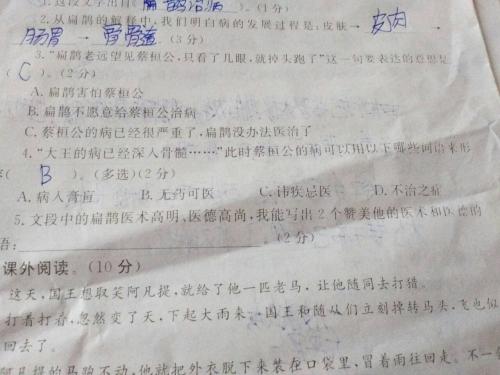 1.这段文字出自( 扁鹊治病 )。(1分)
2.从扁鹊的解释中,我们明白病的发展过程是:皮肤→ 皮肉 →
肠胃 → 骨髓 。(3分)
3.“扁鹊老远望见蔡桓公,只看了几眼,就掉头跑了”这一句要表达的意思是
( C )。(2分)
A.扁鹊害怕蔡桓公
B.扁鹊不愿意给蔡桓公治病
C.蔡桓公的病已经很严重了,扁鹊没办法医治了
4.“大王的病已经深入骨髓……”此时蔡桓公的病可以用以下哪些词语来形
容( B )。(多选)(2分)
A.病入膏肓 B.无药可医 C.讳疾忌医 D.不治之症
5.文段中的扁鹊医术高明、医德高尚,我能写出2个赞美他的医术和医德的
语: 。(2分)
课外阅读。(10分)
这天,国王想取笑阿凡提,就给了他一匹老马,让他随同去打猎。
打着打着,忽然变了天,下起大雨来,国王和随从们立刻掉转马头,飞也似
回去了。
阿凡提的马跑不动,他就把外衣脱下来装在口袋里,冒着雨往回走。不一